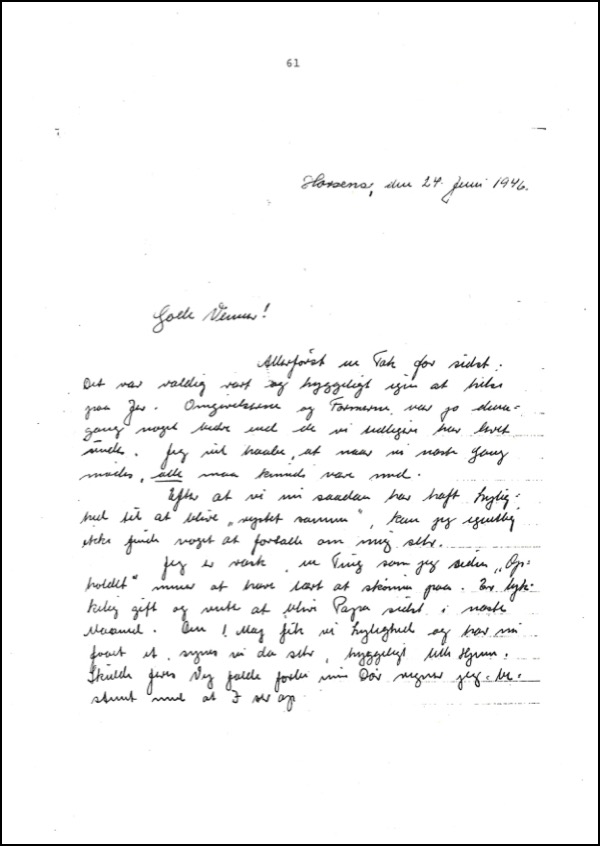 61
Horsens, den 24. Juni 1946.
Gode Venner!
Allerførst en Tak for sidst.
Det var vældig rart og hyggeligt igen at hilse
paa Jer. Omgivelserne og Formerne var jo denne-
gang noget bedre end de vi tidligere har levet
under. Jeg vil haabe, at naar vi næste Gang
mødes, alle maa kunde være med.
Efter at vi nu saadan har haft Lejlig-
hed til at blive „rystet sammen", kan jeg egentlig
ikke finde noget at fortælle om mig selv.
Jeg er rask, en Ting som jeg siden „Op-
holdet" mener at have lært at skønne paa. Er lyk-
kelig gift og venter at blive Papa sidst i næste
Maaned. Den 1 Maj fik vi Lejlighed og har nu
faaet et, synes vi da selv, hyggeligt lille Hjem.
Skulde Jeres Vej falde forbi min Dør regner jeg be-
stemt med at I ser op